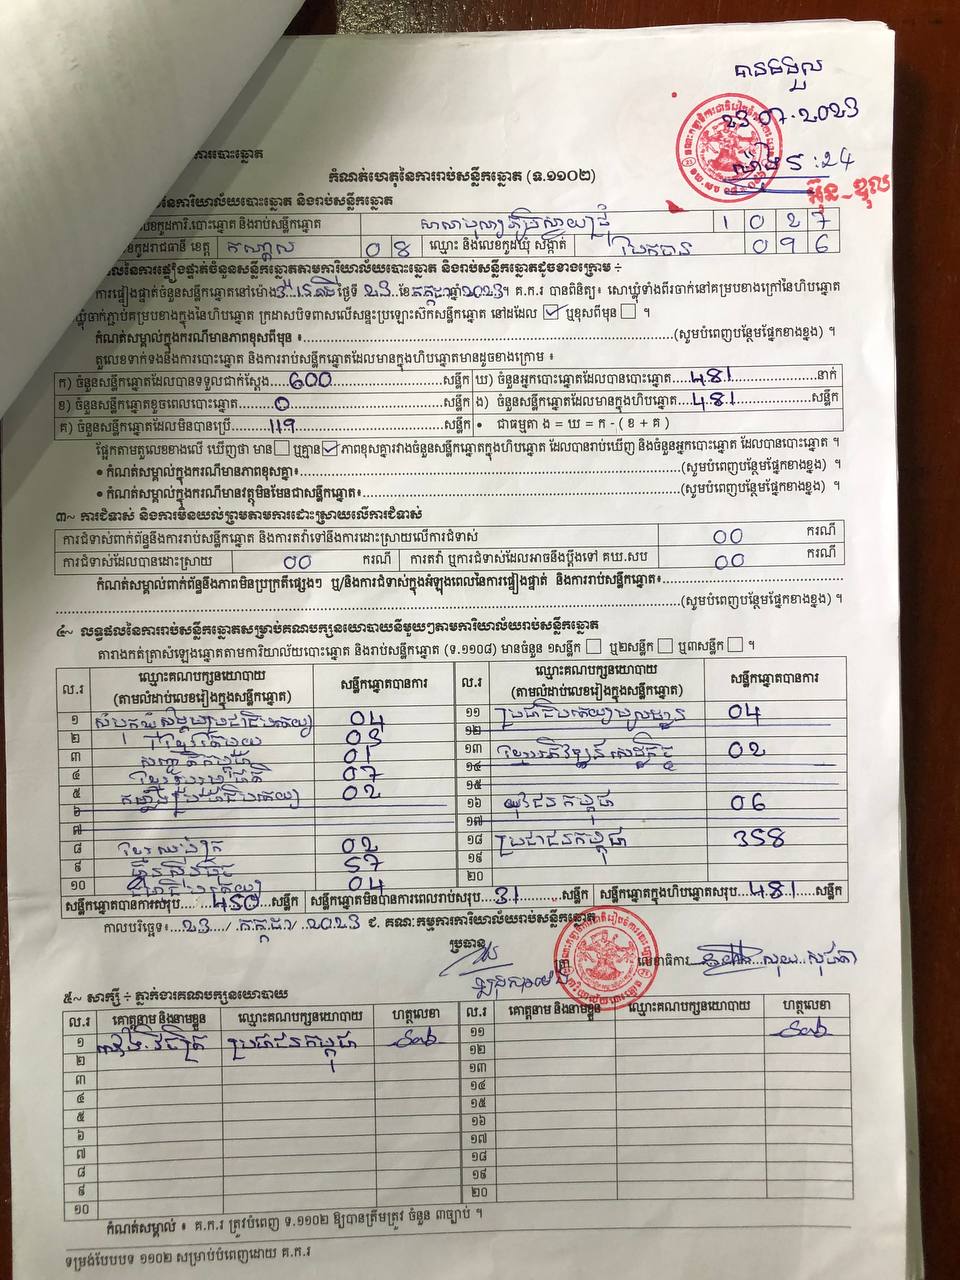 បានទទួល
23.07.2023
ម៉ោង : 24
ការបោះឆ្នោត
កំណត់ហេតុនៃការរាប់សន្លឹកឆ្នោត (ទ.១១០២)
នៃការិយាល័យបោះឆ្នោត និងរាប់សន្លឹកឆ្នោត
ខកូដការិ.បោះឆ្នោត និងរាប់សន្លឹកឆ្នោត 1 0 2 7
ខកូដរាជធានី ខេត្ត កណ្តាល 0 8 ឈ្មោះ និងលេខកូដឃុំ សង្កាត់ 0 9 6
លនៃការផ្ទៀងផ្ទាត់ចំនួនសន្លឹកឆ្នោតតាមការិយាល័យបោះឆ្នោត និងរាប់សន្លឹកឆ្នោតដូចខាងក្រោម ÷
ការផ្ទៀងផ្ទាត់ចំនួនសន្លឹកឆ្នោតនៅម៉ោង ថ្ងៃទី 23 ខែ កក្កដា ឆ្នាំ 2023 ។ គ.ក.រ បានពិនិត្យ៖ សោឃ្លុំទាំងពីរចាក់នៅគម្របខាងក្រៅនៃហិបឆ្នោត
ឃ្លុំចាក់ភ្ជាប់គម្របខាងក្នុងនៃហិបឆ្នោត ក្រដាសបិទពាសលើសន្ទះប្រឡោះសៀកសន្លឹកឆ្នោត នៅដដែល ☑ ឬខុសពីមុន ☐ ។
កំណត់សម្គាល់ក្នុងករណីមានភាពខុសពីមុន ៖ (សូមបំពេញបន្ថែមផ្នែកខាងខ្នង) ។
តួលេខទាក់ទងនឹងការបោះឆ្នោត និងការរាប់សន្លឹកឆ្នោតដែលមានក្នុងហិបឆ្នោតមានដូចខាងក្រោម ៖
ក) ចំនួនសន្លឹកឆ្នោតដែលបានទទួលជាក់ស្តែង 600 សន្លឹក ឃ) ចំនួនអ្នកបោះឆ្នោតដែលបានបោះឆ្នោត 481 នាក់
ខ) ចំនួនសន្លឹកឆ្នោតខូចពេលបោះឆ្នោត 0 សន្លឹក ង) ចំនួនសន្លឹកឆ្នោតដែលមានក្នុងហិបឆ្នោត 481 សន្លឹក
គ) ចំនួនសន្លឹកឆ្នោតដែលមិនបានប្រើ 119 សន្លឹក • ជាធម្មតា ង = ឃ = ក - ( ខ + គ )
ផ្អែកតាមតួលេខខាងលើ ឃើញថា មាន ☐ ឬគ្មាន ☑ ភាពខុសគ្នារវាងចំនួនសន្លឹកឆ្នោតក្នុងហិបឆ្នោត ដែលបានរាប់ឃើញ និងចំនួនអ្នកបោះឆ្នោត ដែលបានបោះឆ្នោត ។
• កំណត់សម្គាល់ក្នុងករណីមានភាពខុសគ្នា៖ (សូមបំពេញបន្ថែមផ្នែកខាងខ្នង) ។
• កំណត់សម្គាល់ក្នុងករណីមានវត្ថុមិនមែនជាសន្លឹកឆ្នោត៖ (សូមបំពេញបន្ថែមផ្នែកខាងខ្នង) ។
៣~ ការជំទាស់ និងការមិនយល់ព្រមតាមការដោះស្រាយលើការជំទាស់
ការជំទាស់ពាក់ព័ន្ធនឹងការរាប់សន្លឹកឆ្នោត និងការតវ៉ាទៅនឹងការដោះស្រាយលើការជំទាស់ 00 ករណី
ការជំទាស់ដែលបានដោះស្រាយ 00 ករណី ការតវ៉ា ឬការជំទាស់ដែលអាចនឹងប្តឹងទៅ គឃ.សប 00 ករណី
កំណត់សម្គាល់ពាក់ព័ន្ធនឹងភាពមិនប្រក្រតីផ្សេងៗ ឬ/និងការជំទាស់ក្នុងអំឡុងពេលនៃការផ្ទៀងផ្ទាត់ និងការរាប់សន្លឹកឆ្នោត៖
(សូមបំពេញបន្ថែមផ្នែកខាងខ្នង) ។
៤~ លទ្ធផលនៃការរាប់សន្លឹកឆ្នោតសម្រាប់គណបក្សនយោបាយនីមួយៗតាមការិយាល័យរាប់សន្លឹកឆ្នោត
តារាងកត់ត្រាសំឡេងឆ្នោតតាមការិយាល័យបោះឆ្នោត និងរាប់សន្លឹកឆ្នោត (ទ.១១០៨) មានចំនួន ១សន្លឹក ☐ ឬ២សន្លឹក ☐ ឬ៣សន្លឹក ☐ ។
ល.រ ឈ្មោះគណបក្សនយោបាយ (តាមលំដាប់លេខរៀងក្នុងសន្លឹកឆ្នោត) សន្លឹកឆ្នោតបានការ ល.រ ឈ្មោះគណបក្សនយោបាយ (តាមលំដាប់លេខរៀងក្នុងសន្លឹកឆ្នោត) សន្លឹកឆ្នោតបានការ
១ សំបុកឃ្មុំសង្គមប្រជាធិបតេយ្យ 04 ១១ ប្រជាធិបតេយ្យមូលដ្ឋាន 04
២ 03 ១២
៣ សញ្ជាតិកម្ពុជា 01 ១៣ ខ្មែរអភិវឌ្ឍន៍សេដ្ឋកិច្ច 02
៤ ខ្មែររួបរួមជាតិ 07 ១៤
៥ កម្លាំងប្រជាធិបតេយ្យ 02 ១៥
៦ ១៦ យុវជនកម្ពុជា 06
៧ ១៧
៨ 02 ១៨ ប្រជាជនកម្ពុជា 358
៩ ហ៊្វុនស៊ិនប៉ិច 57 ១៩
១០ 04 ២០
សន្លឹកឆ្នោតបានការសរុប 450 សន្លឹក សន្លឹកឆ្នោតមិនបានការពេលរាប់សរុប 31 សន្លឹក សន្លឹកឆ្នោតក្នុងហិបឆ្នោតសរុប 481 សន្លឹក
កាលបរិច្ឆេទ៖ 23 / កក្កដា / 2023 ជ. គណៈកម្មការការិយាល័យរាប់សន្លឹកឆ្នោត
ប្រធាន លេខាធិការ
៥~ សាក្សី ÷ ភ្នាក់ងារគណបក្សនយោបាយ
ល.រ គោត្តនាម និងនាមខ្លួន ឈ្មោះគណបក្សនយោបាយ ហត្ថលេខា ល.រ គោត្តនាម និងនាមខ្លួន ឈ្មោះគណបក្សនយោបាយ ហត្ថលេខា
១ ប្រជាជនកម្ពុជា ១១
២ ១២
៣ ១៣
៤ ១៤
៥ ១៥
៦ ១៦
៧ ១៧
៨ ១៨
៩ ១៩
១០ ២០
កំណត់សម្គាល់ ៖ គ.ក.រ ត្រូវបំពេញ ទ.១១០២ ឱ្យបានត្រឹមត្រូវ ចំនួន ៣ច្បាប់ ។
ទម្រង់បែបបទ ១១០២ សម្រាប់បំពេញដោយ គ.ក.រ